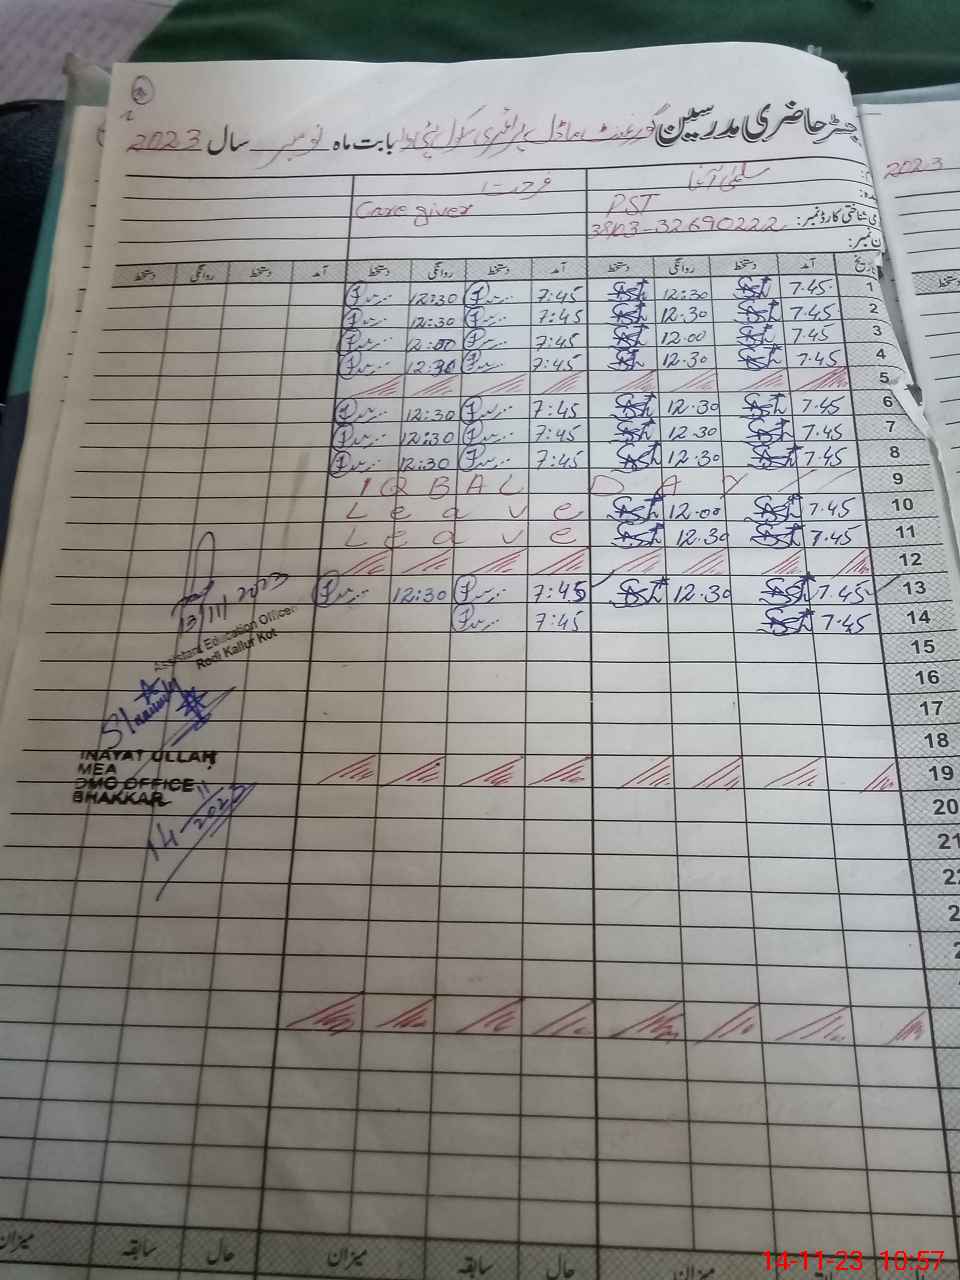 رجسٹر حاضری مدرسین گورنمنٹ ماڈل پرائمری سکول بابت ماہ نومبر سال 2023
2023
فرحت
Care giver PST
ی شناختی کارڈ نمبر:
ن نمبر:
تاریخ آمد دستخط روانگی دستخط آمد دستخط روانگی دستخط آمد دستخط روانگی دستخط
دستخط
1 7.45 12:30 7:45 12:30
2 7.45 12.30 7:45 12:30
3 7.45 12.00 7:45 12:00
4 7.45 12.30 7:45 12:30
5
6 7.45 12.30 7:45 12:30
7 7.45 12.30 7:45 12:30
8 7.45 12.30 7:45 12:30
IQBAL DAY 9
10 7.45 12.00 Leave
11 7.45 12.30 Leave
12
13 7.45 12.30 7:45 12:30
14 7.45 7:45
15
16
17
18
19
20
21
22
13/11/2023
Assistant Education Officer
Rodi Kallur Kot
INAYAT ULLAH
MEA
DMO OFFICE
BHAKKAR
14-11-2023
میزان حال سابقہ میزان حال سابقہ میزان
14-11-23 10:57